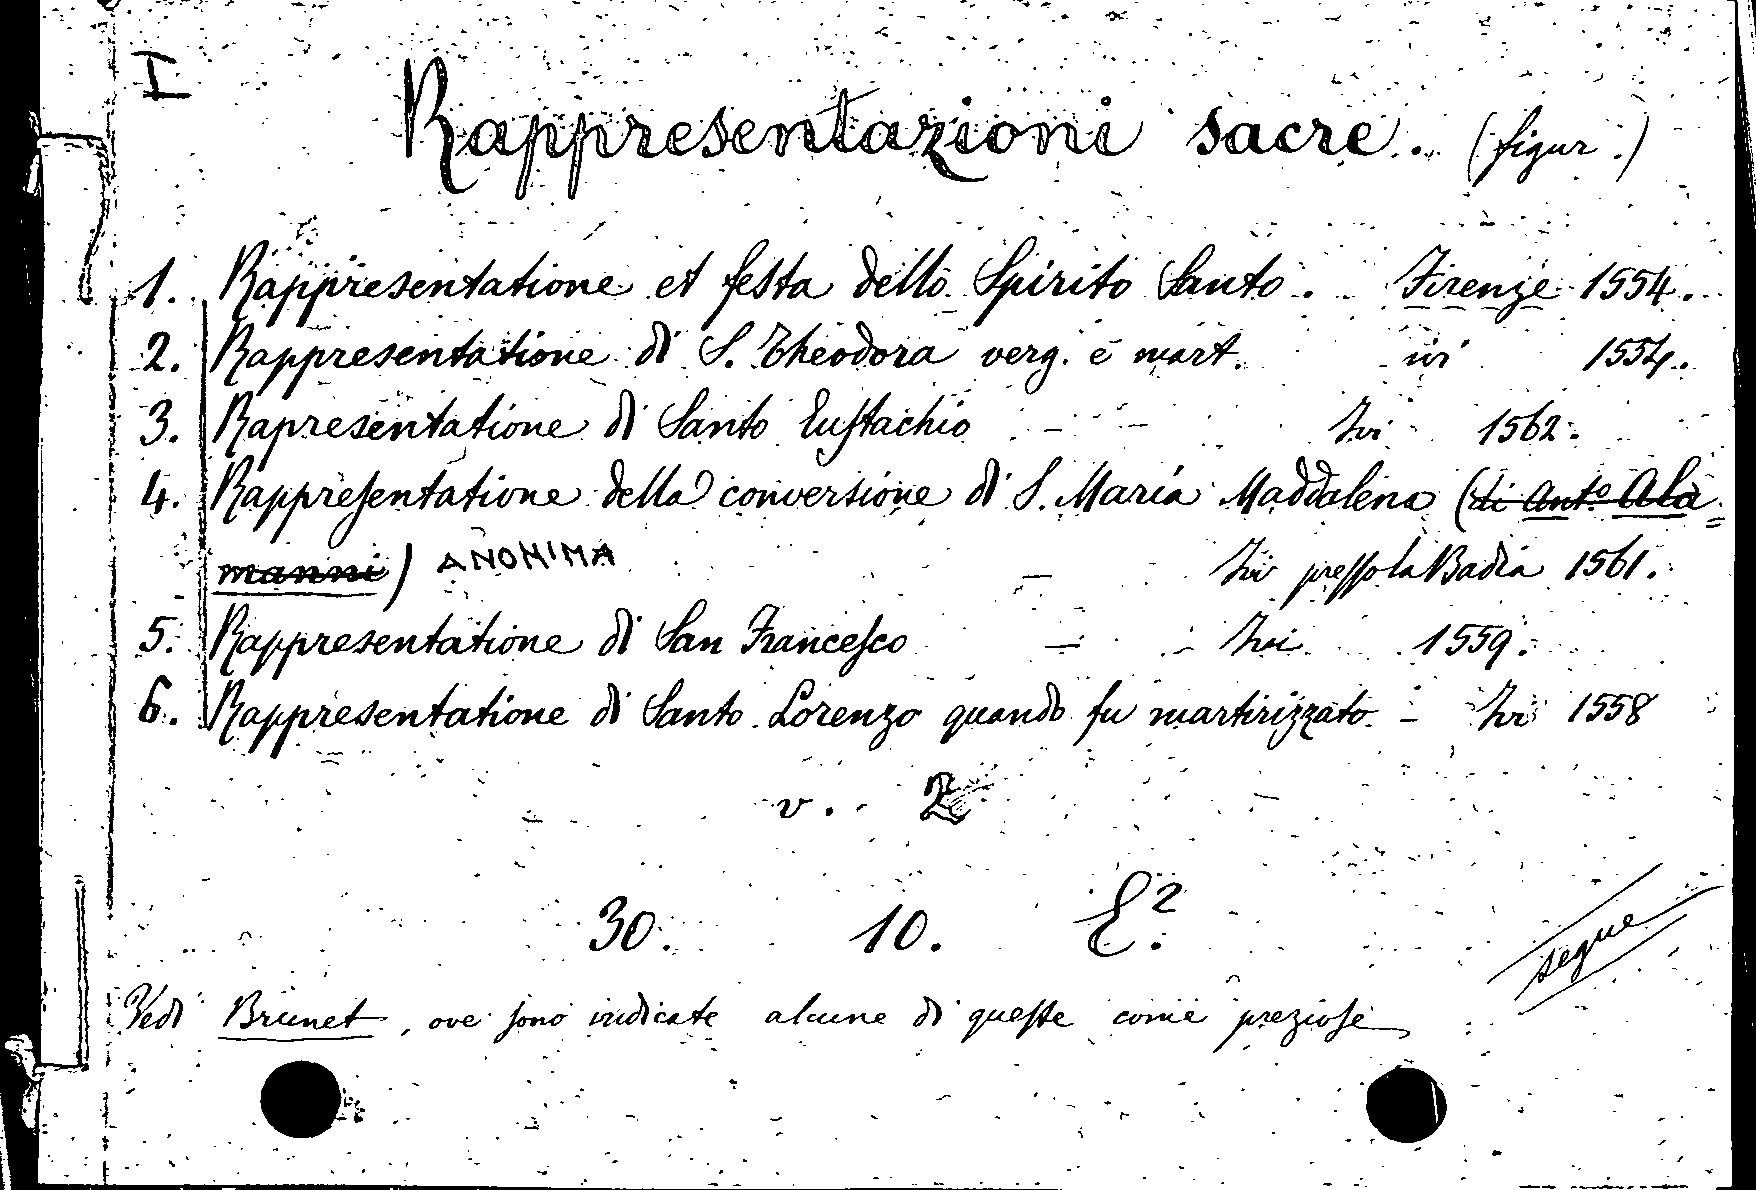 I
Rappresentazioni sacre. (figur.)
1. Rappresentatione et festa dello Spirito Santo. Firenze 1554.
2. Rappresentatione di S. Theodora verg. e mart. ivi 1554.
3. Rapresentatione di Santo Eustachio - - Ivi 1562.
4. Rappresentatione della conversione di S. Maria Maddalena (di Ant.º Ala=
manni) ANONIMA - Ivi presso la Badia 1561.
5. Rappresentatione di San Francesco - - Ivi 1559.
6. Rappresentatione di Santo Lorenzo quando fu martirizzato - Ivi 1558
v. 2
30. 10. E.2
segue
Vedi Brunet, ove sono indicate alcune di queste come preziose